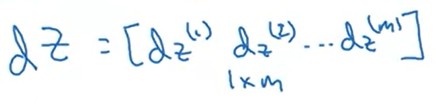 dZ = [dz⁽¹⁾ dz⁽²⁾ ... dz⁽ᵐ⁾]
1×m